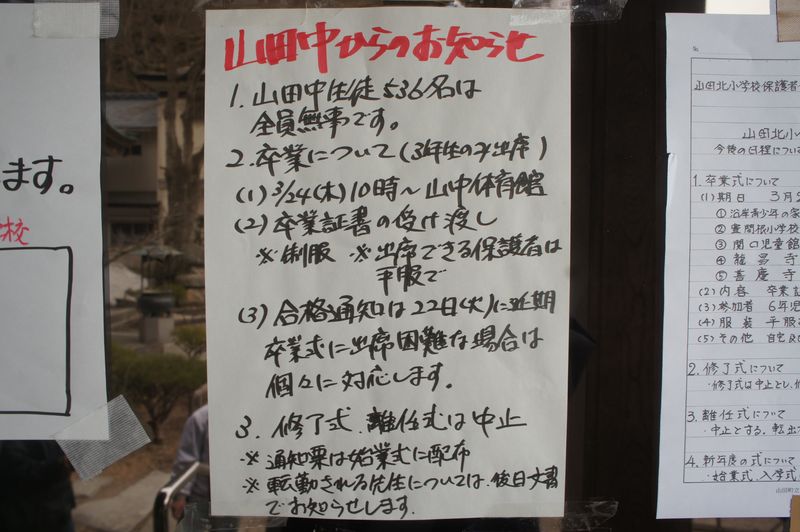 ます。
校
山田中からのお知らせ
1. 山田中生徒536名は
全員無事です。
2. 卒業について(3年生のみ出席)
(1) 3/24(木)10時〜山中体育館
(2) 卒業証書の受け渡し
※制服 ※出席できる保護者は
平服で
(3) 合格通知は22日(火)に延期
卒業式に出席困難な場合は
個々に対応します。
3. 修了式、離任式は中止
※通知票は始業式に配布
※転勤される先生については、後日文書
でお知らせします。
山田北小学校保護者
山田北小
今後の日程につい
1. 卒業式について
(1) 期日 3月2
①沿岸青少年の家
②豊間根小学校
③関口児童館
④龍昌寺
⑤善慶寺
(2) 内容 卒業証
(3) 参加者 6年児
(4) 服装 平服
(5) その他 自宅
2. 修了式について
・修了式は中止とし、
3. 離任式について
・中止とする。転出
4. 新年度の式について
・始業式、入学式
山田町立